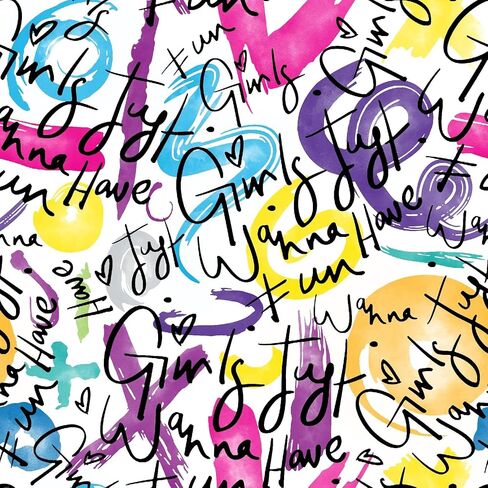 Girls Just
Wanna Have
Fun
Fun
Girls
Girls Just
Wanna Have
Fun
Girls Just
Wanna Have
Fun
Wanna
Just
Have
Fun
Wanna Just
Girls Just
Wanna Have
Fun
Girls
Wanna
Have